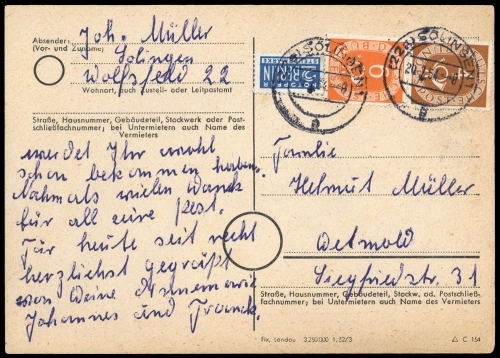 Absender:
(Vor- und Zuname)
Joh. Müller
Solingen
Wolfsfeld 22
Wohnort, auch Zustell- oder Leitpostamt
Straße, Hausnummer, Gebäudeteil, Stockwerk oder Post-
schließfachnummer; bei Untermietern auch Name des
Vermieters
werdet Ihr wohl
schon bekommen haben.
Nochmals vielen Dank
für all eure
Für heute seit recht
herzlichst gegrüßt
von Deine Annemarie
Johannes und Frank.
NOTOPFER
2 BERLIN
STEUERMARKE
(22a) SOLINGEN
Familie
Helmut Müller
Detmold
Siegfriedstr. 31
Straße, Hausnummer, Gebäudeteil, Stockw. od. Postschließ-
fachnummer; bei Untermietern auch Name des Vermieters
Fix, Landau 3.250.000 1.52/3
C 154